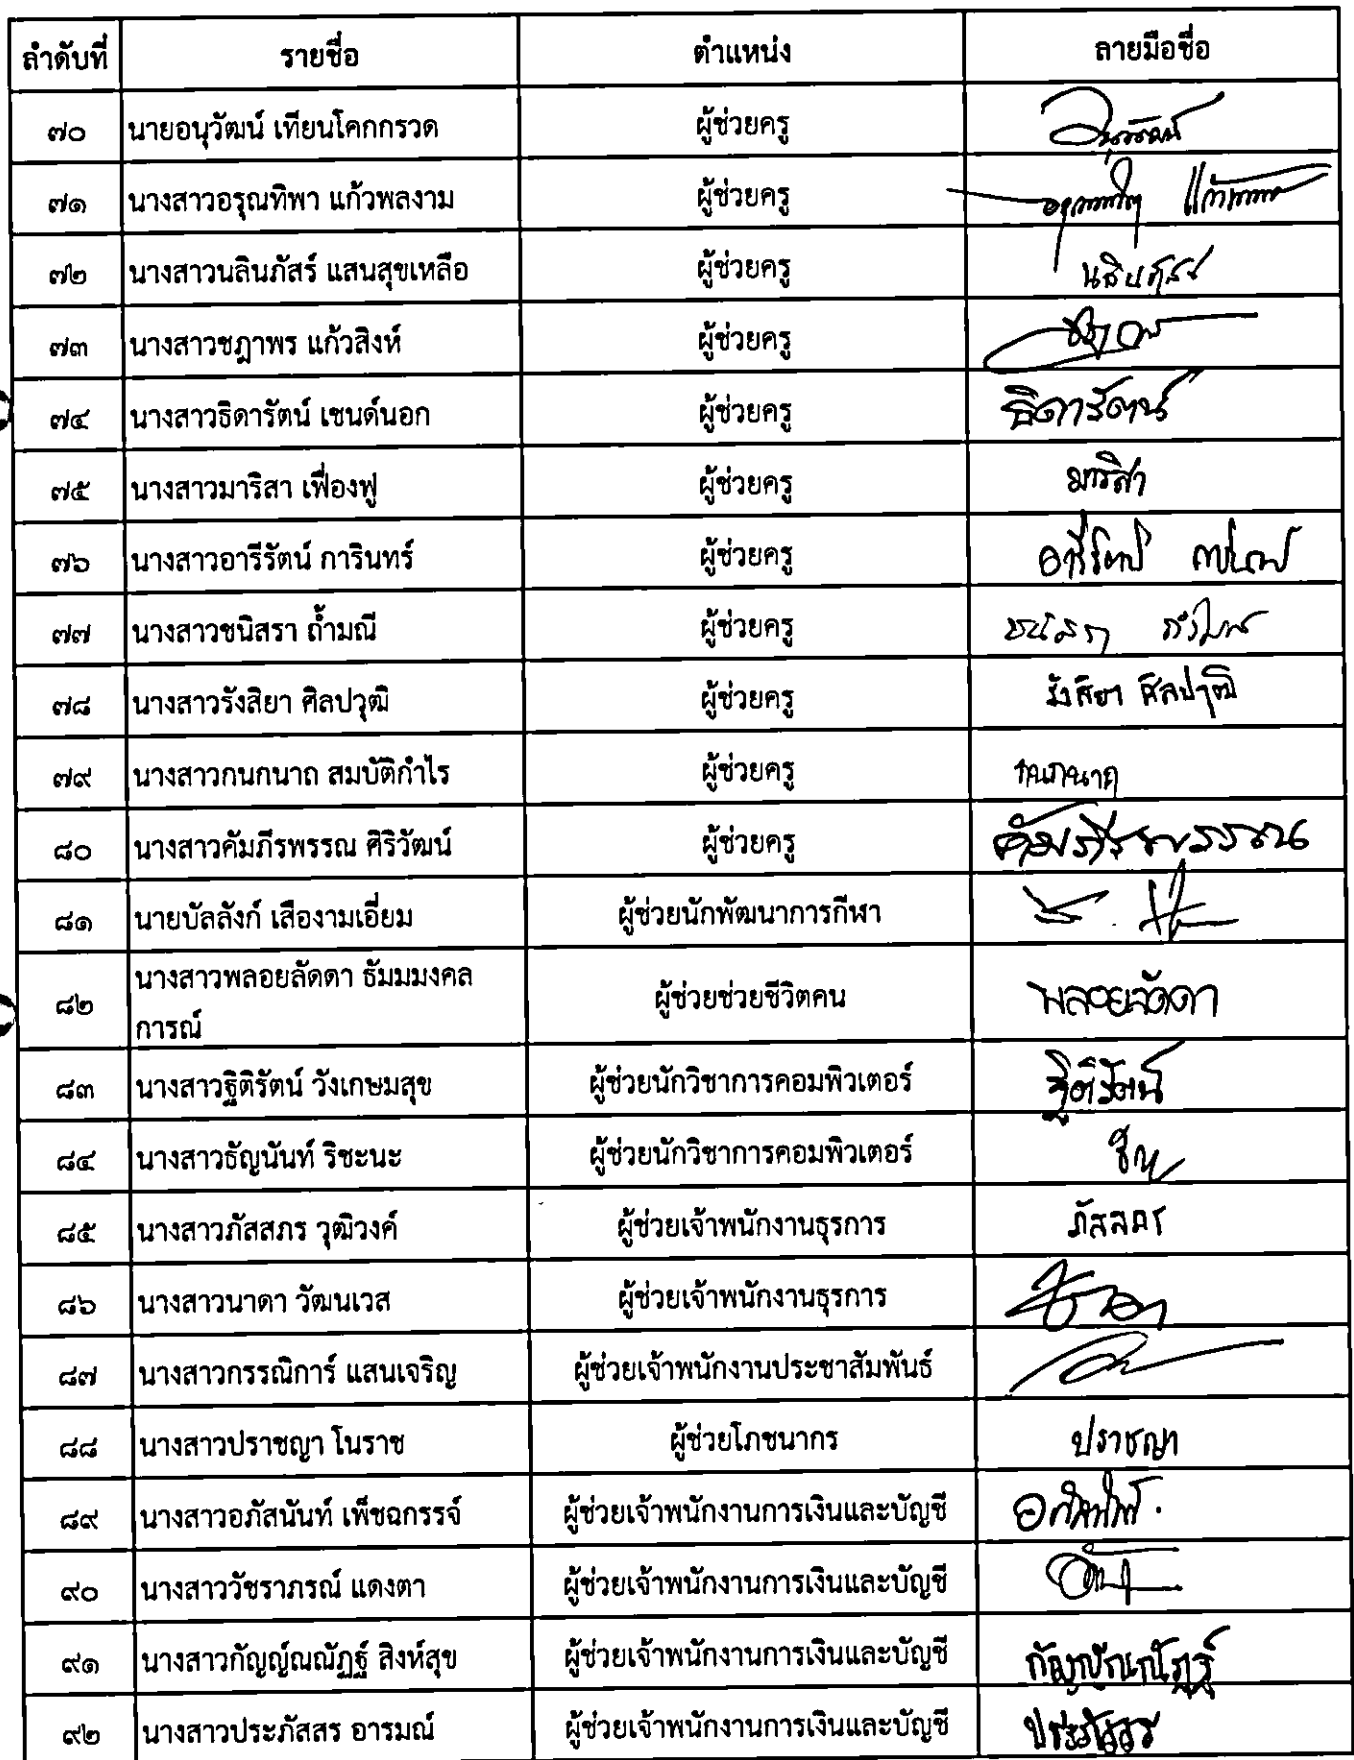 ลำดับที่ รายชื่อ ตำแหน่ง ลายมือชื่อ
๗๐ นายอนุวัฒน์ เทียนโคกกรวด ผู้ช่วยครู อนุวัฒน์
๗๑ นางสาวอรุณทิพา แก้วพลงาม ผู้ช่วยครู
๗๒ นางสาวนลินภัสร์ แสนสุขเหลือ ผู้ช่วยครู นลินภัสร์
๗๓ นางสาวชฎาพร แก้วสิงห์ ผู้ช่วยครู
๗๔ นางสาวธิดารัตน์ เชนด์นอก ผู้ช่วยครู ธิดารัตน์
๗๕ นางสาวมาริสา เฟื่องฟู ผู้ช่วยครู มาริสา
๗๖ นางสาวอารีรัตน์ การินทร์ ผู้ช่วยครู อารีรัตน์
๗๗ นางสาวชนิสรา ถ้ำมณี ผู้ช่วยครู ชนิสรา
๗๘ นางสาวรังสิยา ศิลปวุฒิ ผู้ช่วยครู รังสิยา ศิลปวุฒิ
๗๙ นางสาวกนกนาถ สมบัติกำไร ผู้ช่วยครู กนกนาถ
๘๐ นางสาวคัมภีรพรรณ ศิริวัฒน์ ผู้ช่วยครู คัมภีรพรรณ
๘๑ นายบัลลังก์ เสืองามเอี่ยม ผู้ช่วยนักพัฒนาการกีฬา
๘๒ นางสาวพลอยลัดดา ธัมมมงคล ผู้ช่วยช่วยชีวิตคน พลอยลัดดา
การณ์
๘๓ นางสาวฐิติรัตน์ วังเกษมสุข ผู้ช่วยนักวิชาการคอมพิวเตอร์ ฐิติรัตน์
๘๔ นางสาวธัญนันท์ ริชะนะ ผู้ช่วยนักวิชาการคอมพิวเตอร์
๘๕ นางสาวภัสสภร วุฒิวงค์ ผู้ช่วยเจ้าพนักงานธุรการ ภัสสภร
๘๖ นางสาวนาดา วัฒนเวส ผู้ช่วยเจ้าพนักงานธุรการ
๘๗ นางสาวกรรณิการ์ แสนเจริญ ผู้ช่วยเจ้าพนักงานประชาสัมพันธ์
๘๘ นางสาวปราชญา โนราช ผู้ช่วยโภชนากร ปราชญา
๘๙ นางสาวอภัสนันท์ เพ็ชฉกรรจ์ ผู้ช่วยเจ้าพนักงานการเงินและบัญชี
๙๐ นางสาววัชราภรณ์ แดงตา ผู้ช่วยเจ้าพนักงานการเงินและบัญชี
๙๑ นางสาวกัญญ์ณณัฏฐ์ สิงห์สุข ผู้ช่วยเจ้าพนักงานการเงินและบัญชี กัญญ์ณณัฏฐ์
๙๒ นางสาวประภัสสร อารมณ์ ผู้ช่วยเจ้าพนักงานการเงินและบัญชี ประภัสสร